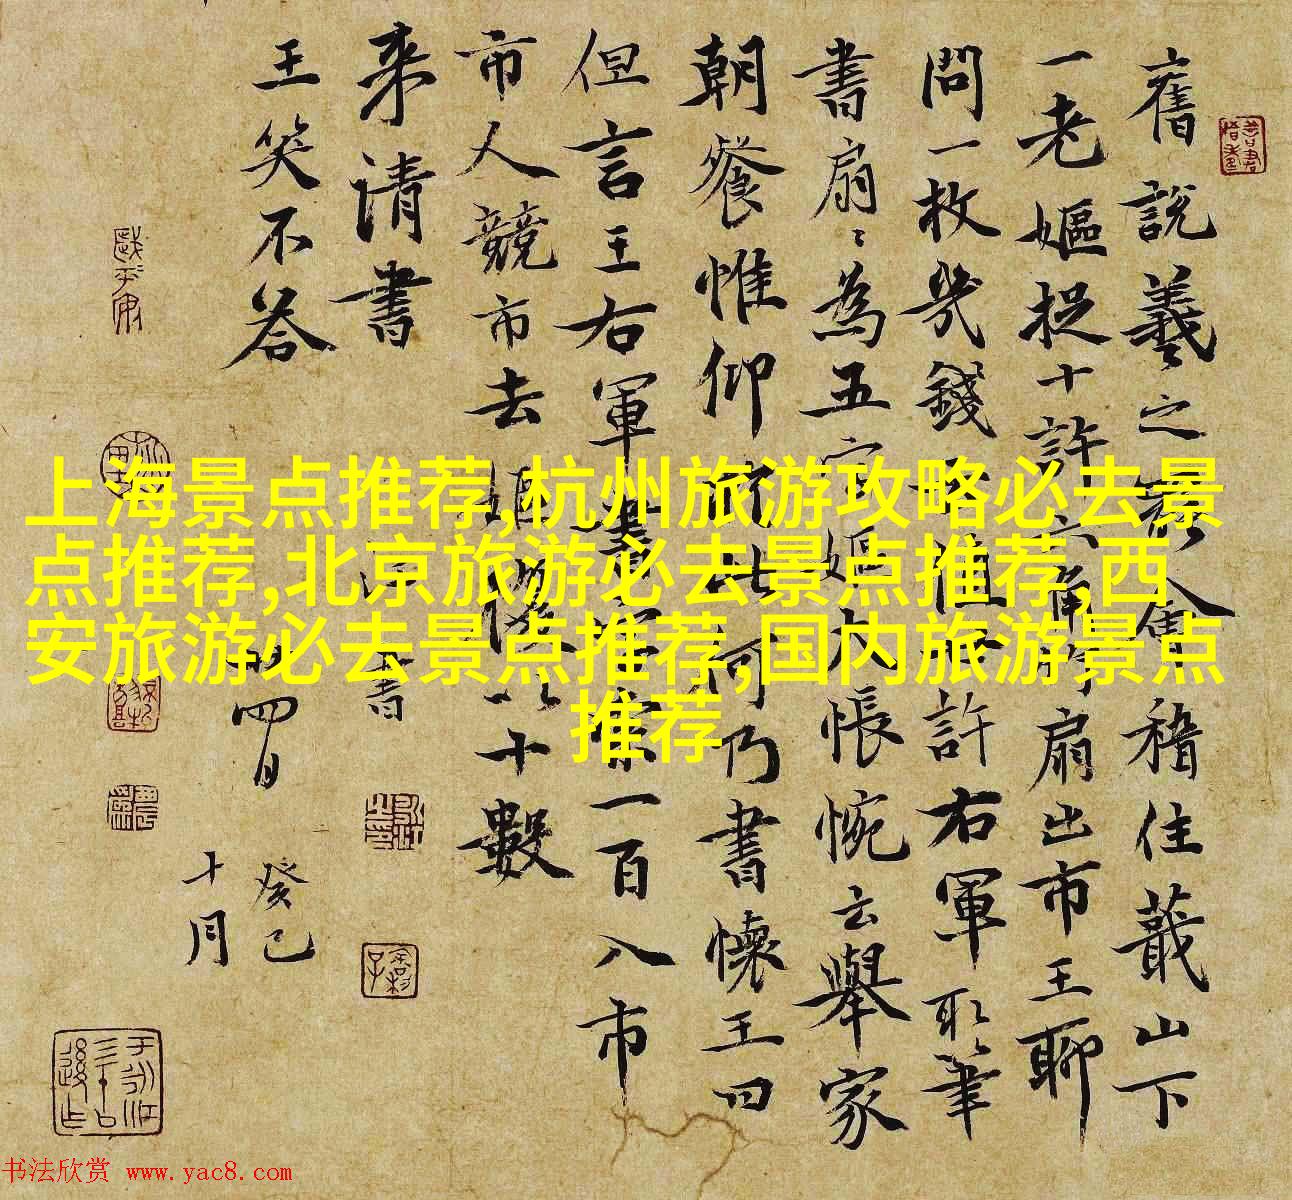 舊說羲之罷會稽住蕺山下
一老嫗捉十許六角竹扇出市王聊
問一枚幾錢云值廿許右軍取筆
書扇扇為五字嫗大悵惋云舉家
朝餐惟仰於此何乃書懷王曰
但言王右軍書字索一百入市
市人競市去姥復以十數
来請書
王笑不答
四日
癸巳
十月
上海景点推荐,杭州旅游攻略必去景
点推荐,北京旅游必去景点推荐,西
安旅游必去景点推荐,国内旅游景点
推荐
书法欣赏 www.yac8.com